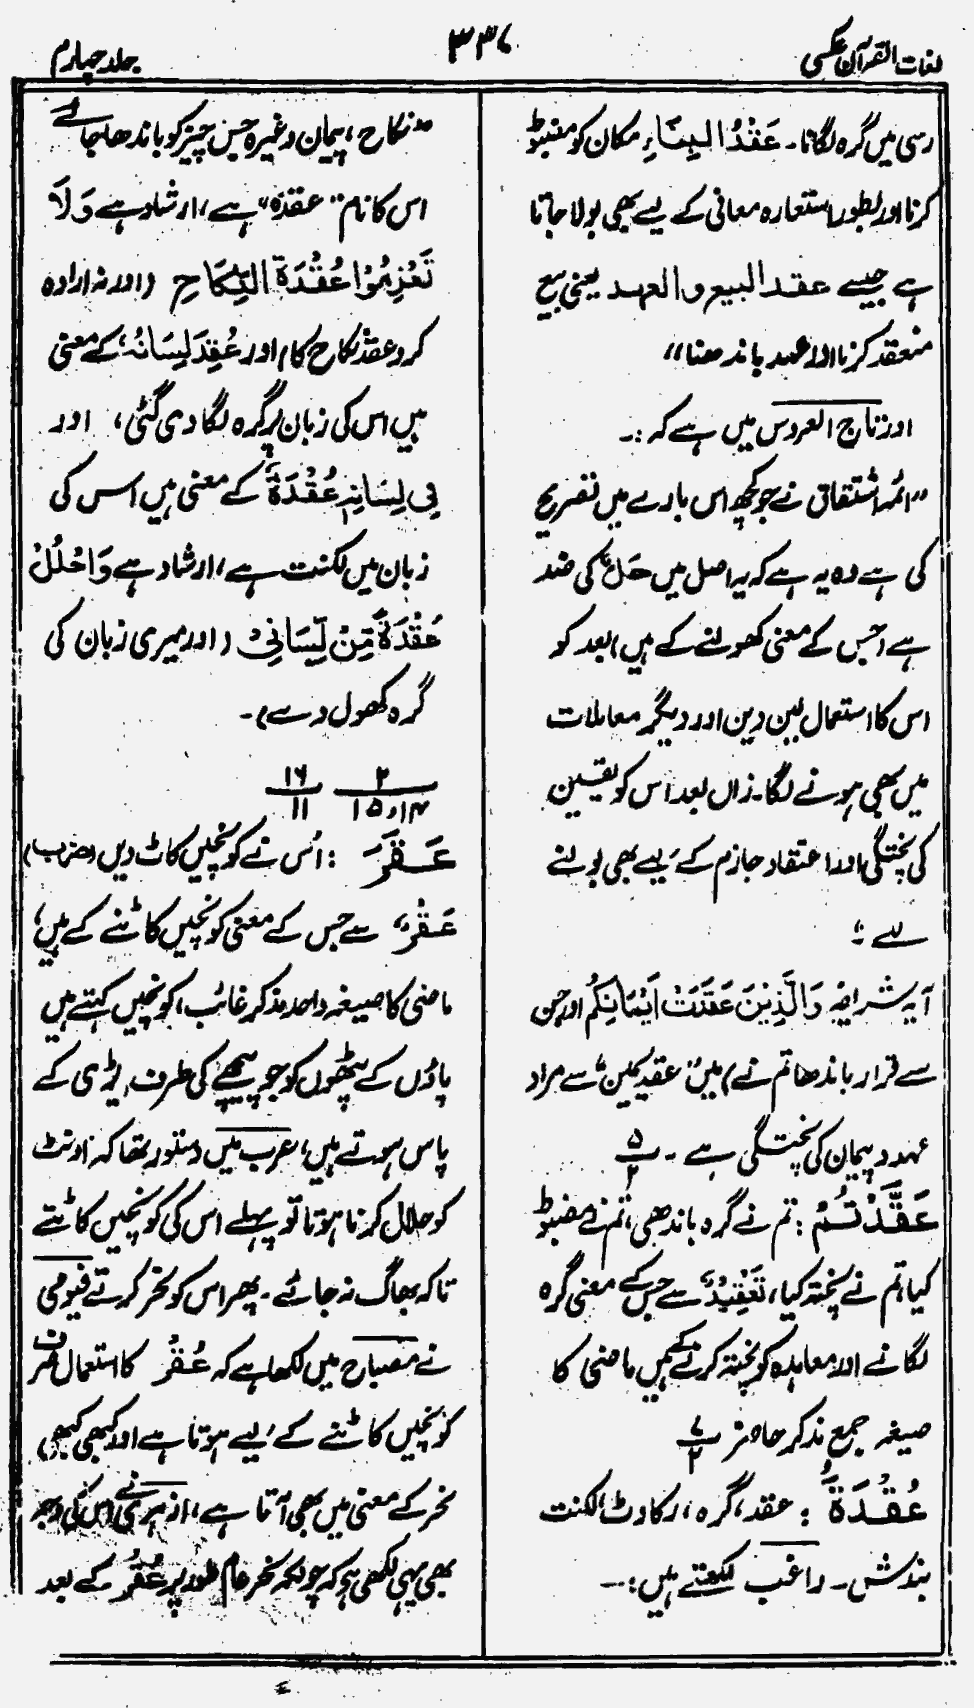 لغات القرآن عکسی
۳۳۷
جلد چہارم
رسی میں گرہ لگانا۔ عَقْدُ الْبِنَاءِ مکان کو مضبوط
کرنا اور بطور استعارہ معانی کے لیے بھی بولا جاتا
ہے جیسے عقد البیع والعہد یعنی بیع
منعقد کرنا اور عہد باندھنا"
اور تاج العروس میں ہے کہ :۔
"ائمہ اشتقاق نے جو کچھ اس بارے میں تصریح
کی ہے وہ یہ ہے کہ یہ اصل میں حَلٌّ کی ضد
ہے (جس کے معنی کھولنے کے ہیں) بعد کو
اس کا استعمال لین دین اور دیگر معاملات
میں بھی ہونے لگا۔ زاں بعد اس کو یقین
کی پختگی اور اعتقاد جازم کے لیے بھی بولنے
لگے :
آیہ شریفہ وَالَّذِیْنَ عَقَدَتْ اَیْمَانُکُمْ اور جن
سے قرار باندھا تم نے) میں "عقد یمین" سے مراد
عہد و پیمان کی پختگی ہے ۔ ۵/۲
عَقَّدْتُّمْ : تم نے گرہ باندھی، تم نے مضبوط
کیا، تم نے پختہ کیا، تَعْقِیْدٌ سے جس کے معنی گرہ
لگانے اور معاہدہ کو پختہ کرنے کے ہیں ماضی کا
صیغہ جمع مذکر حاضر ۷/۲
عُقْدَةٌ : عقد، گرہ، رکاوٹ، لکنت
بندش۔ راغب لکھتے ہیں :۔
"نکاح، پیمان وغیرہ جس چیز کو باندھا جائے
اس کا نام "عقدہ" ہے، ارشاد ہے وَلَا
تَعْزِمُوْا عُقْدَةَ النِّکَاحِ (اور نہ ارادہ
کرو عقد نکاح کا) اور عُقِدَ لِسَانُہٗ کے معنی
ہیں اس کی زبان پر گرہ لگا دی گئی، اور
فِی لِسَانِہٖ عُقْدَةٌ کے معنی ہیں اس کی
زبان میں لکنت ہے، ارشاد ہے وَاحْلُلْ
عُقْدَةً مِّنْ لِّسَانِیْ (اور میری زبان کی
گرہ کھول دے)۔
۲/۱۴، ۱۵ ۱۶/۱۱
عَقَرَ : اُس نے کونچیں کاٹ دیں (ضرب)
عَقْرٌ سے جس کے معنی کونچیں کاٹنے کے ہیں،
ماضی کا صیغہ واحد مذکر غائب، کونچیں کہتے ہیں
پاؤں کے پٹھوں کو جو پیچھے کی طرف ایڑی کے
پاس ہوتے ہیں، عرب میں دستور تھا کہ اونٹ
کو حلال کرنا ہوتا تو پہلے اس کی کونچیں کاٹتے
تاکہ بھاگ نہ جائے۔ پھر اس کو نحر کرتے فیومی
نے مصباح میں لکھا ہے کہ عُقْرٌ کا استعمال صرف
کونچیں کاٹنے کے لیے ہوتا ہے اور کبھی کبھی
نحر کے معنی میں بھی آتا ہے، ازہری نے اس کی وجہ
بھی یہی لکھی ہے کہ چونکہ نحر عام طور پر عُقْر کے بعد